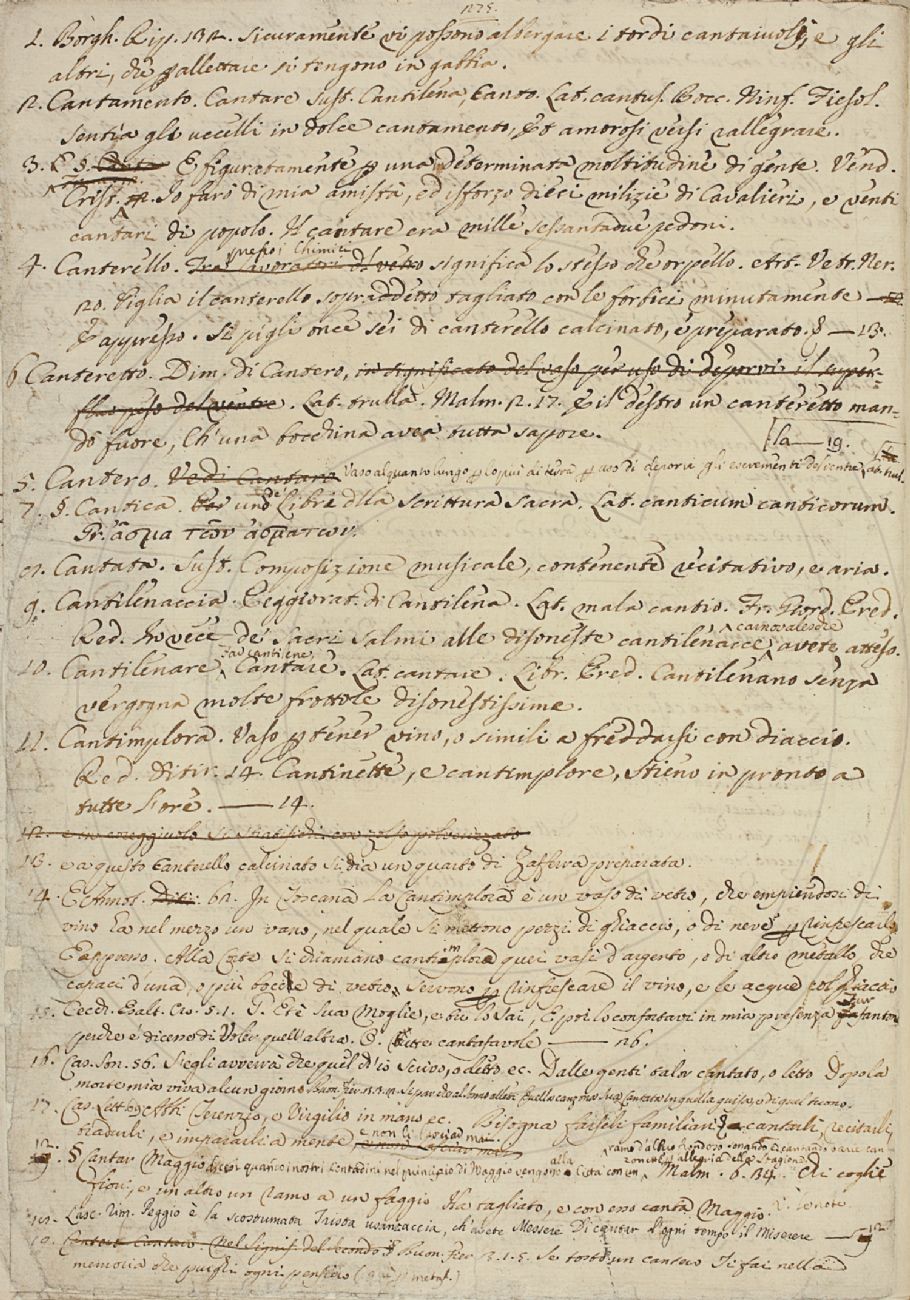 1275.
1. Borgh. Rip. 132. sicuramente vi possono albergare i tordi cantaiuoli, e gli
altri, che p allettare si tengono in gabbia.
2. Cantamento. Cantare sust. Cantilena, Canto. Lat. cantus. Bocc. Ninf. Fiesol.
Sentia gli uccelli in dolce cantamento, Et amorosi versi rallegrare.
3. §. E figuratamente p una determinata moltitudine di gente. Vend.
Crist. Io farò di mia amistà, ed isforzo dieci milizie di Cavalieri, e venti
cantari di popolo. Il cantare era mille sessantadue pedoni.
presso i Chimici
4. Canterello. Tra' lavoratori di vetro significa lo stesso che orpello. Art. Vetr. Ner.
20. Piglia il canterello sopraddetto tagliato con le forbici minutamente —
E appresso. Si pigli once sei di canterello calcinato, e preparato. — 13.
6. Canteretto. Dim. di Cantero, in significato del vaso per uso di deporvi il super-
fluo peso del ventre. Lat. trulla. Malm. 2. 17. E il destro un canteretto man-
dò fuore, Ch' una bocchina avea tutta sapore.
la — 19.
5. Cantero. Vedi Cantaro Vaso alquanto lungo p lo più di terra p uso di deporvi gli escrementi del ventre Lat.
7. §. Cantica. uno de' Libri della Scrittura Sacra. Lat. canticum canticorum.
Gr. ᾆσμα τῶν ᾀσμάτων.
8. Cantata. Sust. Composizione musicale, contenente recitativo, e aria.
9. Cantilenaccia. Peggiorat. di Cantilena. Lat. mala cantio. Fr. Giord. Pred.
carnovalesche
Red. Invece de' Sacri Salmi alle disoneste cantilenacce avete atteso.
Far cantilene
10. Cantilenare. Cantare. Lat. cantare. Libr. Pred. Cantilenano senza
vergogna molte frottole disonestissime.
11. Cantimplora. Vaso p tener vino, o simili a freddarsi con diaccio.
Red. Ditir. 14. Cantinette, e cantimplore, Stieno in pronto a
tutte l'ore. — 14.
12. e in coreggiuolo si stratifichi con zolfo polverizzato
13. e a questo Canterello calcinato si dia un quarto di Zaffera preparata.
14. E Annot. Ditir. 62. In Toscana La Cantimplora è un vaso di vetro, che empiendosi di
vino ha nel mezzo un vano, nel quale si mettono pezzi di ghiaccio, o di neve p rinfrescarlo
E appresso. Alla Corte si chiamano cantimplore quei vasi d'argento, o di altro metallo, che
capaci d'una, o più bocce di vetro, Servono p rinfrescare il vino, e le acque col ghiaccio
15. Cecch. Esalt. Cro. 5. 1. T. Ell'è sua Moglie, e tu lo sai, E poi lo confortavi in mia presenza
perchè e' dicono di voler quell'altra. cantafavole — 26.
16. Cas. Son. 56. S'egli avverrà che quel ch'io scrivo, o detto ec. Dalle genti talor cantato, o letto Dopo la
morte mia viva alcun giorno
17. Cas. Lett. Terenzio, e Virgilio in mano ec. Bisogna farseli familiari cantarli, recitarli,
tradurli, e impararli a mente e non li lasciar mai
18. § Cantar Maggio dicesi quando i nostri Contadini nel principio di Maggio vengono alla Città con un
ramo d'albero frondoso sonando, e cantando
Malm. 6. 34. Chi coglie
fiori, e un altro un ramo a un faggio Ha tagliato, e con esso canta Maggio.
19. Lasc. Rim. Peggio è la scostumata Trista usanzaccia, ch'avete Messere Di cantar d'ogni tempo il Miserere
Cantero Cantaro. Nel Signif. del secondo § Buon. Fier. 2. 1. 5. Se tosto un cantaro Ti fai nella
memoria che purghi ogni pensiero (qui p metaf.)